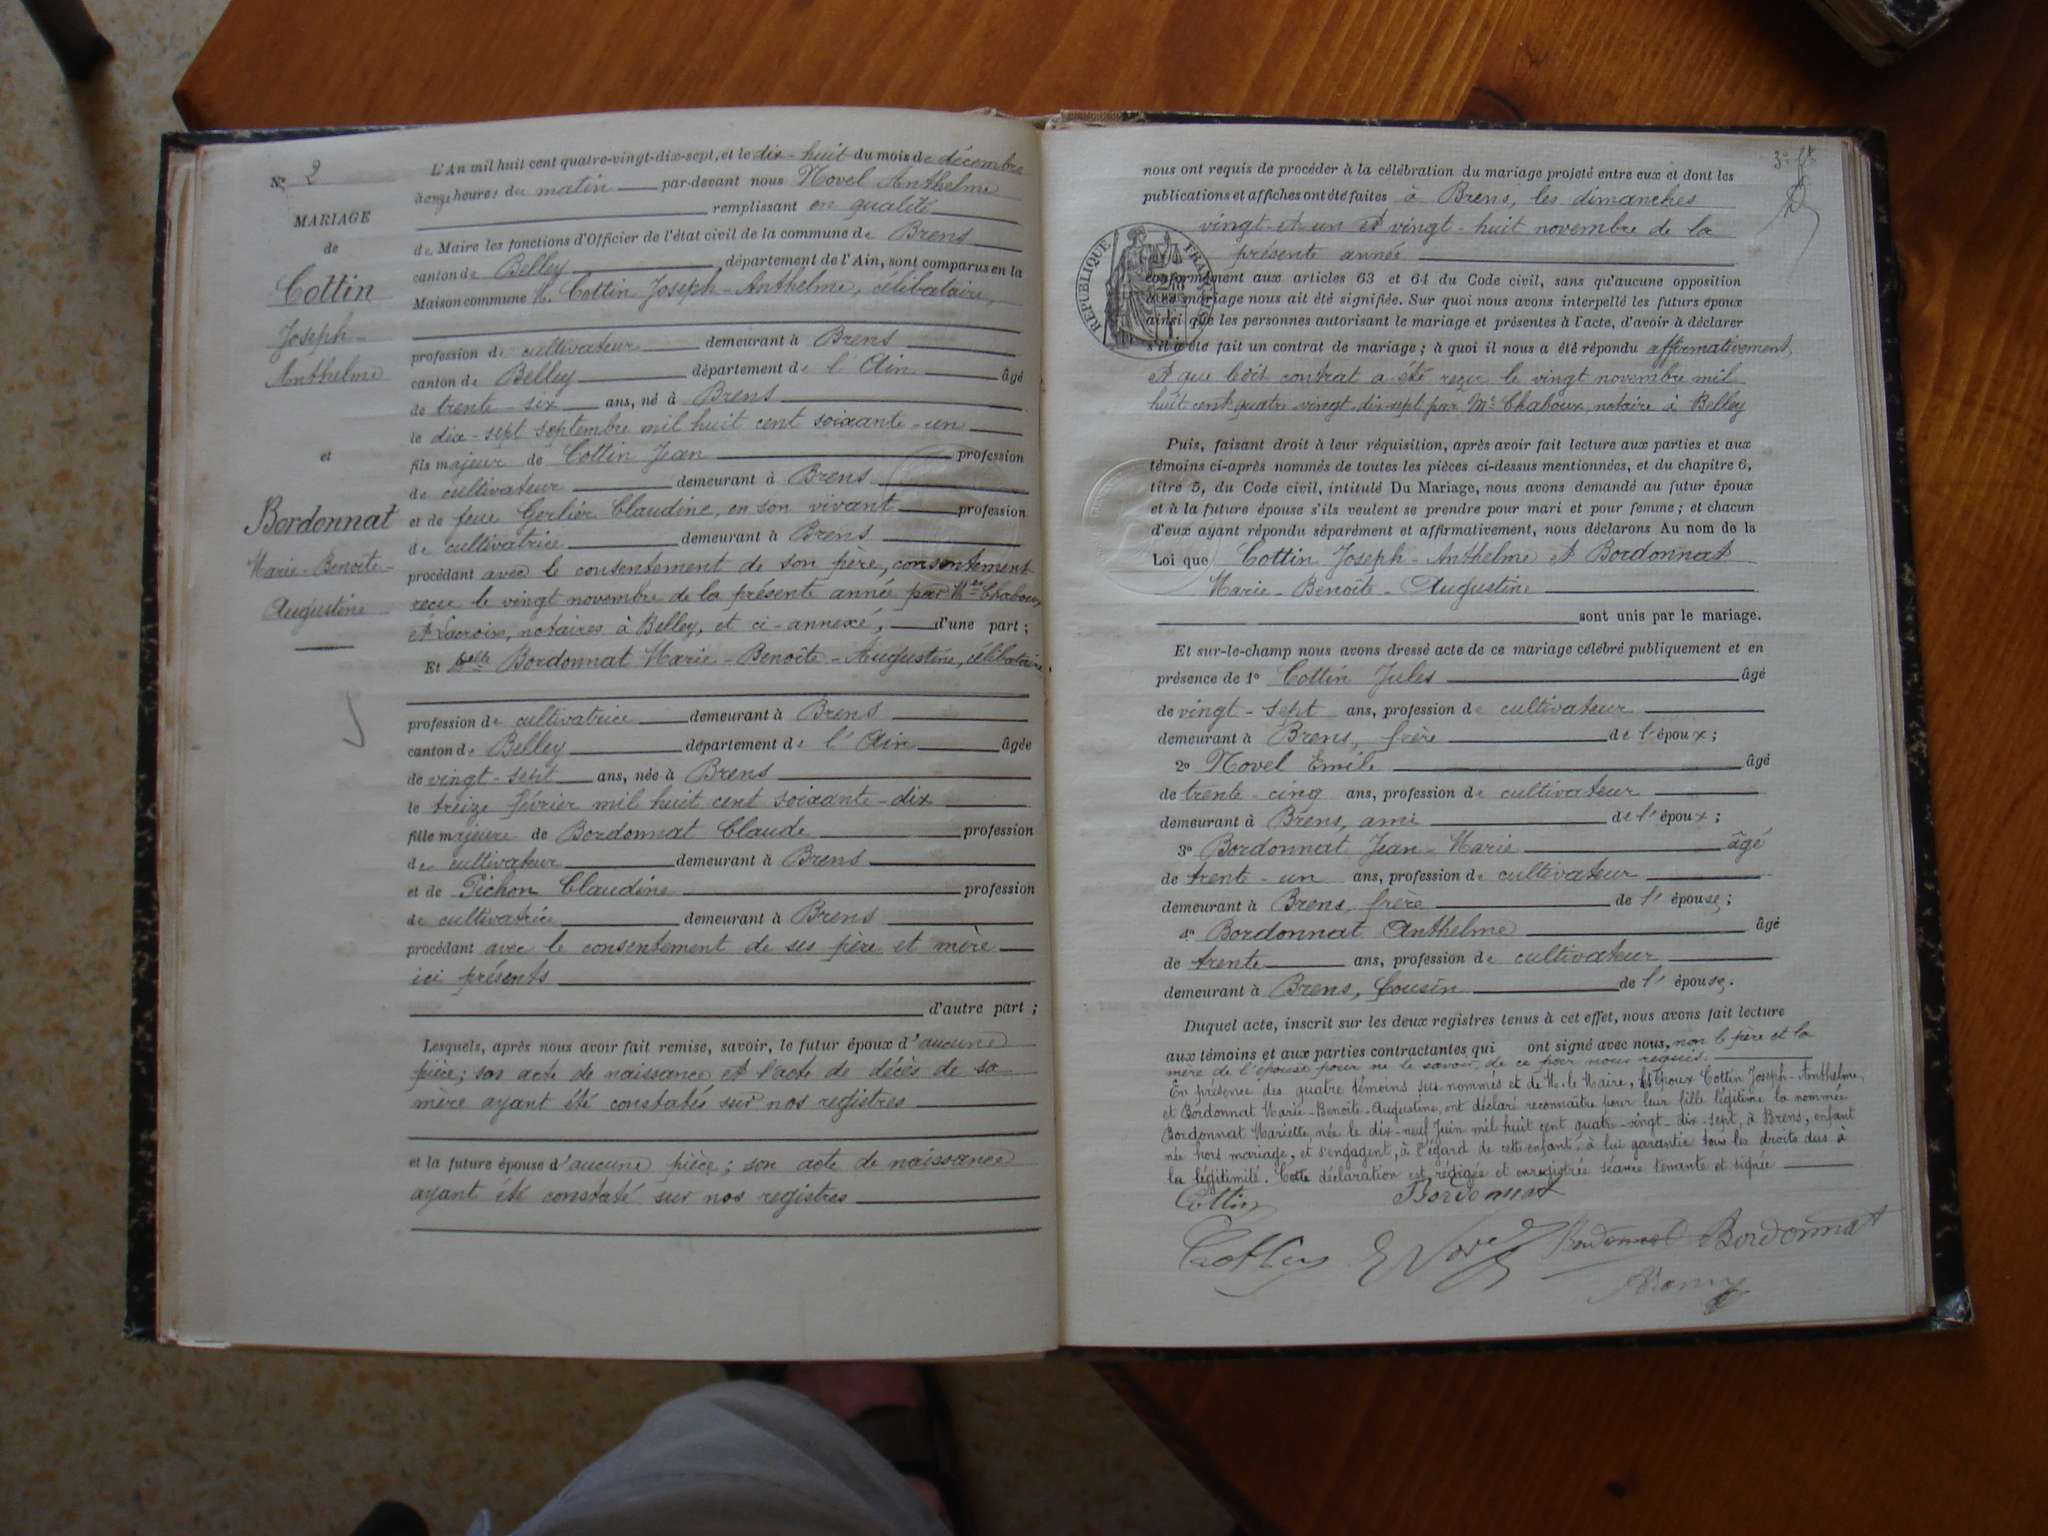 Nº 2
MARIAGE
de
Cottin
Joseph-
Anthelme
et
Bordonnat
Marie-Benoîte-
Augustine
L'An mil huit cent quatre-vingt-dix-sept, et le dix-huit du mois de décembre
à onze heures du matin par-devant nous Novel Anthelme
remplissant en qualité
de Maire les fonctions d'Officier de l'état civil de la commune de Brens
canton de Belley département de l'Ain, sont comparus en la
Maison commune M. Cottin Joseph-Anthelme, célibataire,
profession de cultivateur demeurant à Brens
canton de Belley département de l'Ain âgé
de trente-six ans, né à Brens
le dix-sept septembre mil huit cent soixante-un
fils majeur de Cottin Jean profession
de cultivateur demeurant à Brens
et de feue Gerlier Claudine, en son vivant profession
de cultivatrice demeurant à Brens
procédant avec le consentement de son père, consentement
reçu le vingt novembre de la présente année par Mes Chaboux
et Lacroix, notaires à Belley, et ci-annexé, d'une part;
Et Delle Bordonnat Marie-Benoîte-Augustine, célibataire,
profession de cultivatrice demeurant à Brens
canton de Belley département de l'Ain âgée
de vingt-sept ans, née à Brens
le treize février mil huit cent soixante-dix
fille majeure de Bordonnat Claude profession
de cultivateur demeurant à Brens
et de Pichon Claudine profession
de cultivatrice demeurant à Brens
procédant avec le consentement de ses père et mère
ici présents
d'autre part;
Lesquels, après nous avoir fait remise, savoir, le futur époux d'aucune
pièce; son acte de naissance et l'acte de décès de sa
mère ayant été constatés sur nos registres
et la future épouse d'aucune pièce; son acte de naissance
ayant été constaté sur nos registres
3e ft
nous ont requis de procéder à la célébration du mariage projeté entre eux et dont les
publications et affiches ont été faites à Brens, les dimanches
vingt-et un et vingt-huit novembre de la
présente année
RÉPUBLIQUE FRANÇAISE
conformément aux articles 63 et 64 du Code civil, sans qu'aucune opposition
audit mariage nous ait été signifiée. Sur quoi nous avons interpellé les futurs époux
ainsi que les personnes autorisant le mariage et présentes à l'acte, d'avoir à déclarer
s'il a été fait un contrat de mariage; à quoi il nous a été répondu affirmativement,
et que ledit contrat a été reçu le vingt novembre mil
huit cent quatre vingt-dix-sept par Me Chaboux, notaire à Belley
Puis, faisant droit à leur réquisition, après avoir fait lecture aux parties et aux
témoins ci-après nommés de toutes les pièces ci-dessus mentionnées, et du chapitre 6,
titre 5, du Code civil, intitulé Du Mariage, nous avons demandé au futur époux
et à la future épouse s'ils veulent se prendre pour mari et pour femme; et chacun
d'eux ayant répondu séparément et affirmativement, nous déclarons Au nom de la
Loi que Cottin Joseph-Anthelme et Bordonnat
Marie-Benoîte-Augustine
sont unis par le mariage.
Et sur-le-champ nous avons dressé acte de ce mariage célébré publiquement et en
présence de 1º Cottin Jules âgé
de vingt-sept ans, profession de cultivateur
demeurant à Brens, frère de l'époux;
2º Novel Emile âgé
de trente-cinq ans, profession de cultivateur
demeurant à Brens, ami de l'époux;
3º Bordonnat Jean-Marie âgé
de trente-un ans, profession de cultivateur
demeurant à Brens, frère de l'épouse;
4º Bordonnat Anthelme âgé
de trente ans, profession de cultivateur
demeurant à Brens, Cousin de l'épouse.
Duquel acte, inscrit sur les deux registres tenus à cet effet, nous avons fait lecture
aux témoins et aux parties contractantes qui ont signé avec nous, non le père et la
mère de l'épouse pour ne le savoir, de ce par nous requis.
En présence des quatre témoins sus nommés et de M. le Maire, les époux Cottin Joseph-Anthelme
et Bordonnat Marie-Benoîte-Augustine, ont déclaré reconnaître pour leur fille légitime la nommée
Bordonnat Mariette, née le dix-neuf Juin mil huit cent quatre-vingt-dix-sept, à Brens, enfant
née hors mariage, et s'engagent, à l'égard de cette enfant, à lui garantir tous les droits dus à
la légitimité. Cette déclaration est rédigée et enregistrée séance tenante et signée
Cottin Bordonnat
Cottin E Novel Bordonnat Bordonnat